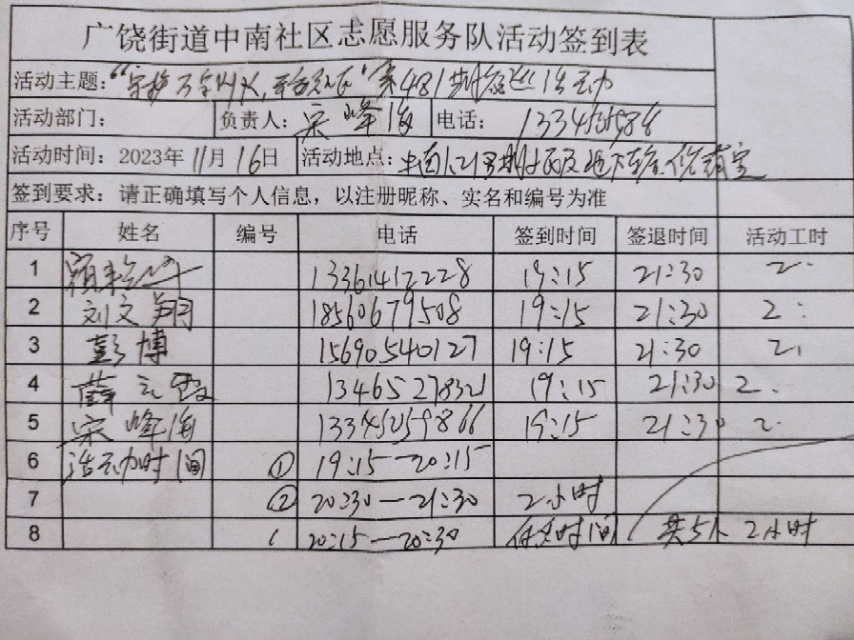 广饶街道中南社区志愿服务队活动签到表
活动主题： 第481期 活动
活动部门： 负责人：宋峰海 电话：
活动时间：2023年11月16日 活动地点：
签到要求：请正确填写个人信息，以注册昵称、实名和编号为准
序号 姓名 编号 电话 签到时间 签退时间 活动工时
1 13361412228 19:15 21:30 2.
2 刘文翔 18560679508 19:15 21:30 2
3 彭博 15690540127 19:15 21:30 2.
4 薛元霞 13465278321 19:15 21:30 2.
5 宋峰海 13345059866 19:15 21:30 2.
6 活动时间 ① 19:15—20:15
7 ② 20:30—21:30 2小时
8 20:15—20:30 休息时间 共5人 2小时